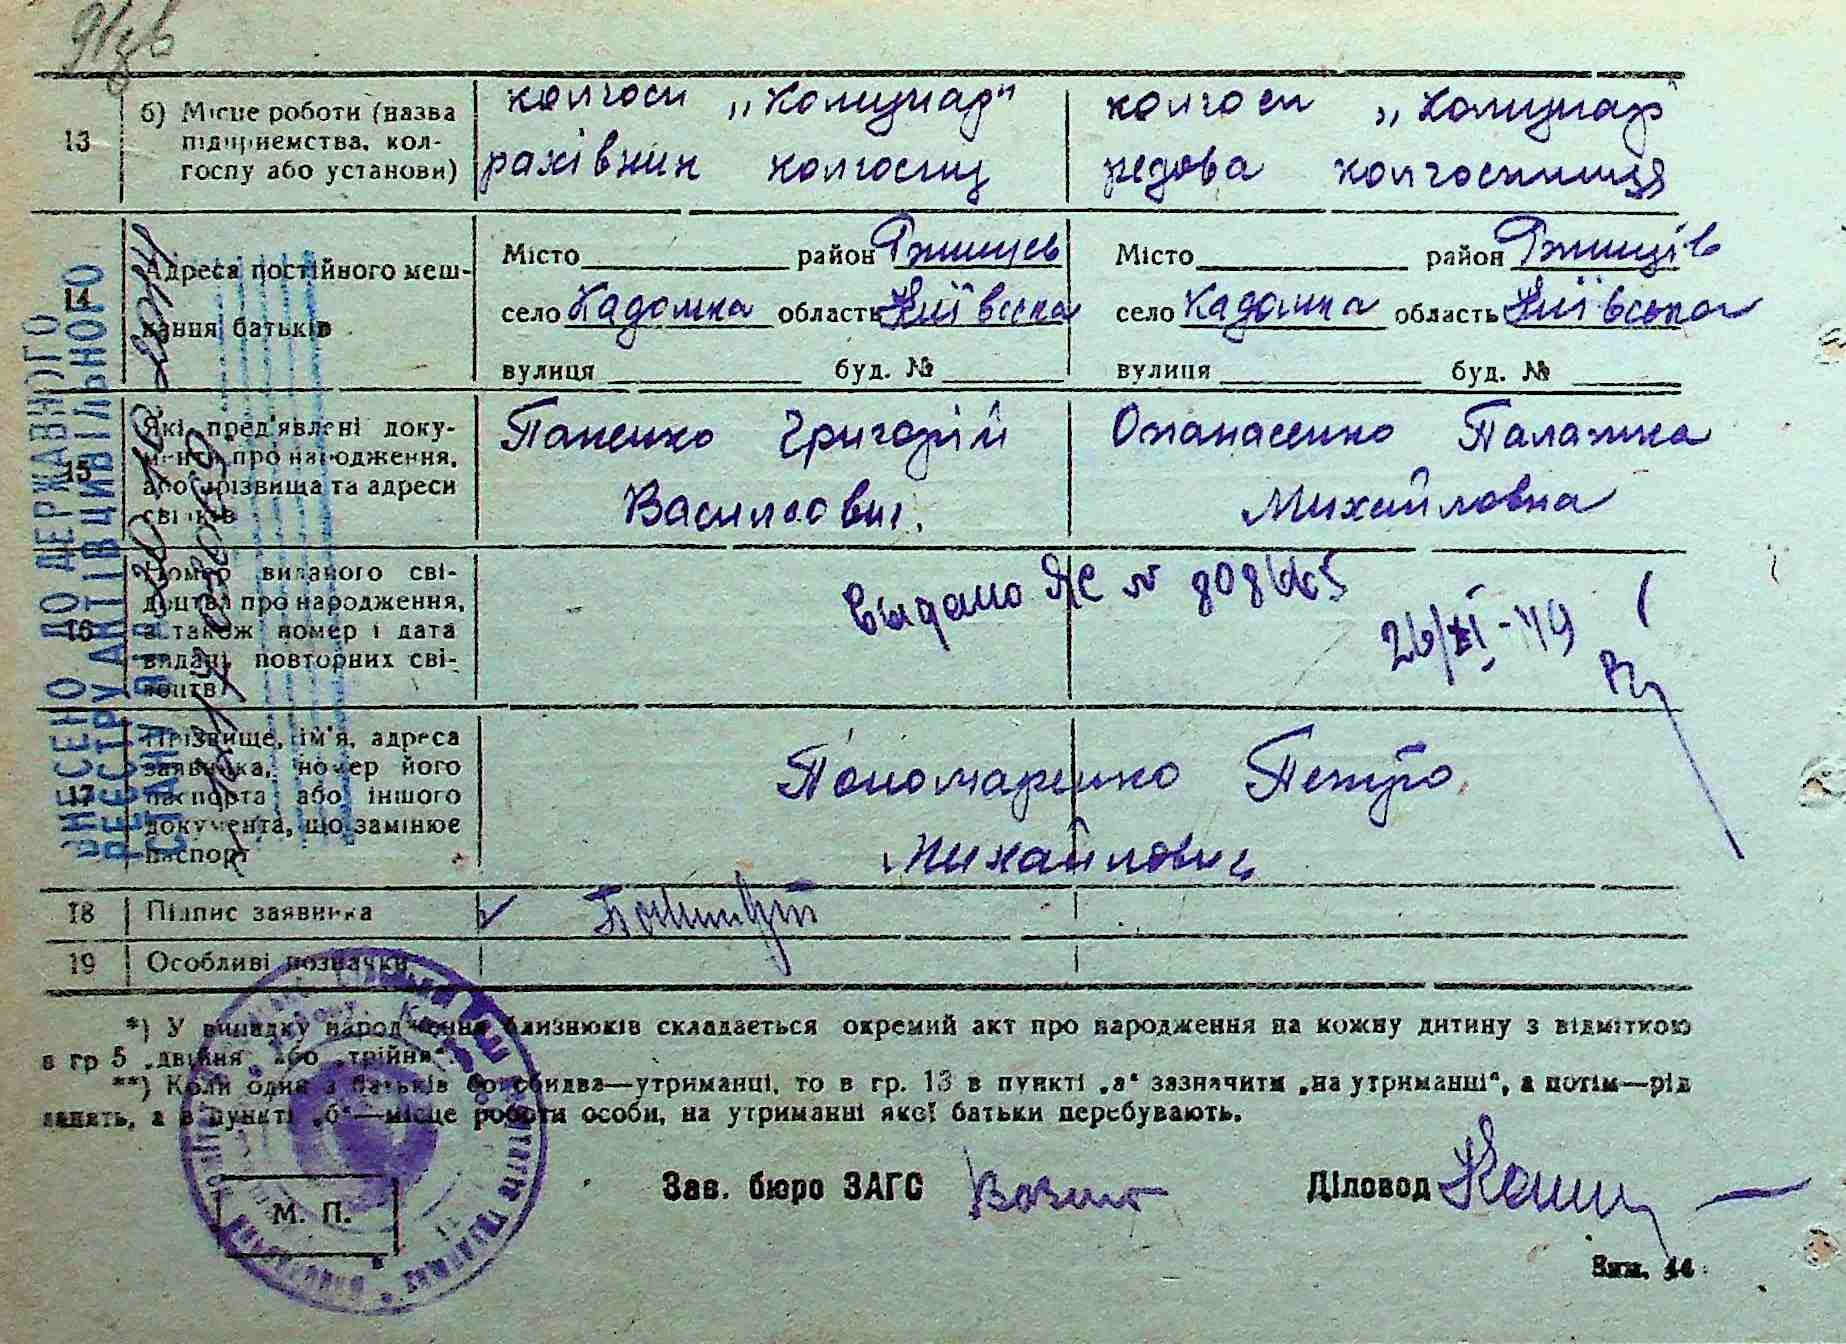 13 б) Місце роботи (назва підприємства, колгоспу або установи)
колгосп „Комунар"
рахівник колгоспу
колгосп „Комунар
рядова колгоспниця
14 Адреса постійного мешкання батьків
Місто район Ржищев
село Кадомка область Київська
вулиця буд. №
Місто район Ржищів
село Кадомка область Київська
вулиця буд. №
15 Які пред'явлені документи про народження, або прізвища та адреси свідків
Паненко Григорій
Васильович.
Опанасенко Палажка
Михайловна
16 Номер виданого свідоцтва про народження, а також номер і дата видачі повторних свідоцтв
Выдано ЯС №
26/XI-49
17 Прізвище, ім'я, адреса заявника, номер його паспорта або іншого документа, що замінює паспорт
Пономаренко Петро
Михайлович
18 Підпис заявника
19 Особливі позначки
*) У випадку народження близнюків складається окремий акт про народження на кожну дитину з відміткою
в гр 5 „двійня" або „трійня".
**) Коли один з батьків або обидва—утриманці, то в гр. 13 в пункті „а" зазначити „на утриманні", а потім—рід
занять, а в пункті „б"—місце роботи особи, на утриманні якої батьки перебувають.
М. П.
Зав. бюро ЗАГС
Діловод
Зим. 44
ВНЕСЕНО ДО ДЕРЖАВНОГО
РЕЄСТРУ АКТІВ ЦИВІЛЬНОГО
СТАНУ